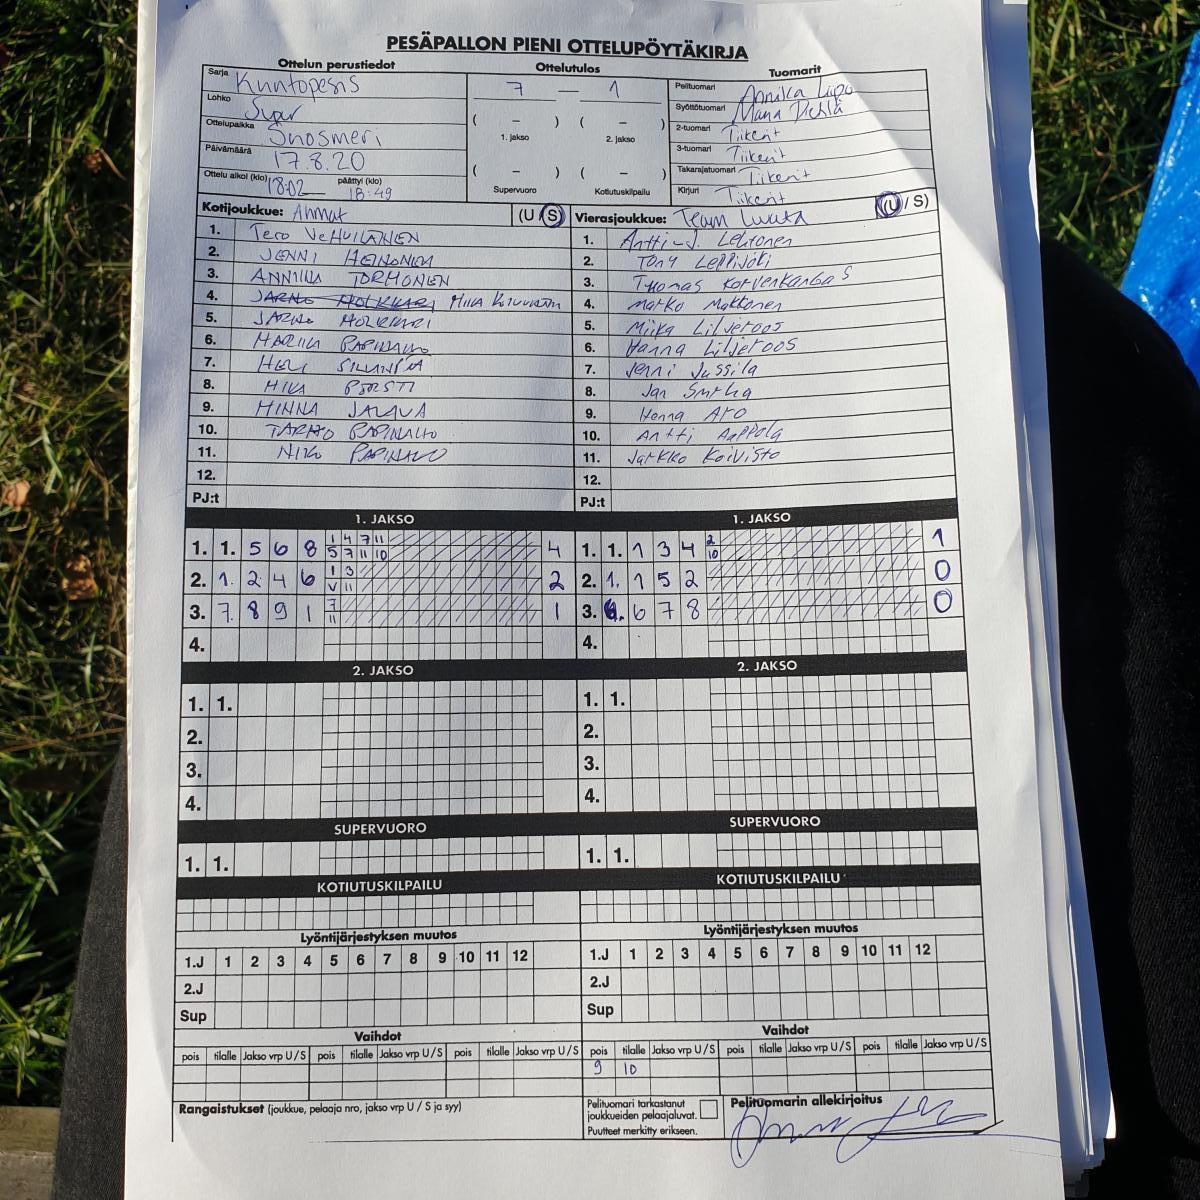 PESÄPALLON PIENI OTTELUPÖYTÄKIRJA
Ottelun perustiedot
Sarja Kuntopesis
Lohko Super
Ottelupaikka Suosmeri
Päivämäärä 17.8.20
Ottelu alkoi (klo) 18:02 päättyi (klo) 18:49
Ottelutulos
7 — 1
( – ) ( – )
1. jakso 2. jakso
( – ) ( – )
Supervuoro Kotiutuskilpailu
Tuomarit
Pelituomari Annika
Syöttötuomari
2-tuomari Tiikerit
3-tuomari Tiikerit
Takarajatuomari Tiikerit
Kirjuri Tiikerit
Kotijoukkue: Ahmat (U/S)
1. Tero
2. JENNI HEINONEN
3. ANNIINA TORMONEN
4. JARNO HOLKKARI MIIA
5. JARNO HOLKKARI
6. MARIKA PAPINAHO
7. HELI
8. MIKA
9. MINNA JALAVA
10. TARMO PAPINAHO
11. NIKO PAPINAHO
12.
PJ:t
Vierasjoukkue: Team Luuta (U/S)
1. Antti-J. Lehtonen
2. Tony Leppijoki
3. Tuomas Korvenkangas
4. Marko Makkonen
5. Miika Liljeroos
6. Hanna Liljeroos
7. Jenni Jussila
8. Jan
9. Henna Aro
10. Antti
11. Jarkko Koivisto
12.
PJ:t
1. JAKSO
1. 1. 5 6 8 1 4 7 11 4
5 7 11 10
2. 1. 2 4 6 1 3 2
V 11
3. 7. 8 9 1 7 1
11
4.
1. JAKSO
1. 1. 1 3 4 2 1
10
2. 1. 1 5 2 0
3. 6. 6 7 8 0
4.
2. JAKSO
1. 1.
2.
3.
4.
2. JAKSO
1. 1.
2.
3.
4.
SUPERVUORO
1. 1.
SUPERVUORO
1. 1.
KOTIUTUSKILPAILU
KOTIUTUSKILPAILU
Lyöntijärjestyksen muutos
1.J 1 2 3 4 5 6 7 8 9 10 11 12
2.J
Sup
Lyöntijärjestyksen muutos
1.J 1 2 3 4 5 6 7 8 9 10 11 12
2.J
Sup
Vaihdot
pois tilalle Jakso vrp U/S pois tilalle Jakso vrp U/S pois tilalle Jakso vrp U/S
Vaihdot
pois tilalle Jakso vrp U/S pois tilalle Jakso vrp U/S pois tilalle Jakso vrp U/S
9 10
Rangaistukset (joukkue, pelaaja nro, jakso vrp U / S ja syy)
Pelituomari tarkastanut
joukkueiden pelaajaluvat.
Puutteet merkitty erikseen.
Pelituomarin allekirjoitus